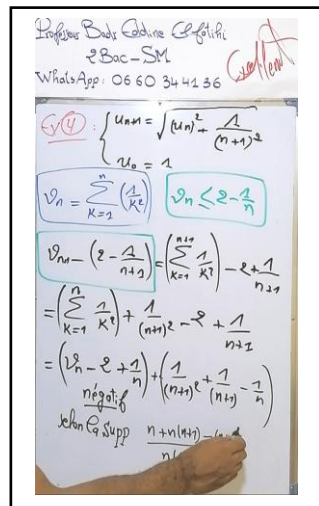 Professeur Badr Eddine El fatihi
2Bac-SM
Excellent
WhatsApp: 06 60 34 41 36
Ex 4 : { u_{n+1} = √((u_n)² + 1/(n+1)²)
u_0 = 1
𝒱_n = ∑_{k=1}^{n} (1/k²)    𝒱_n ≤ 2 - 1/n
𝒱_{n+1} - (2 - 1/(n+1)) = (∑_{k=1}^{n+1} 1/k²) - 2 + 1/(n+1)
= (∑_{k=1}^{n} 1/k²) + 1/(n+1)² - 2 + 1/(n+1)
= (𝒱_n - 2 + 1/n) + (1/(n+1)² + 1/(n+1) - 1/n)
négatif
selon la supp    n + n(n+1) -
n(